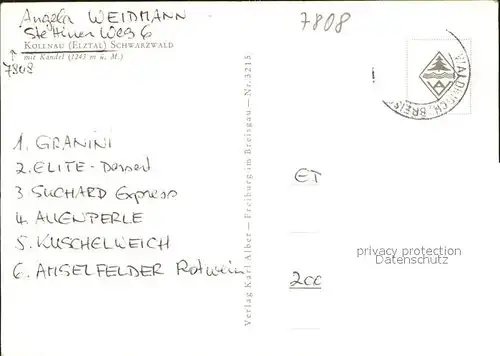 Angela WEIDMANN
Stettiner Weg 6
KOLLNAU (ELZTAL) SCHWARZWALD
mit Kandel (1243 m ü. M.)
7808
7808
WALDKIRCH, BREISG
1. GRANINI
2. ELITE-Dessert
3 SUCHARD Express
4. AUENPERLE
5. KUSCHELWEICH
6. AMSELFELDER Rotwein
Verlag Karl Alber — Freiburg im Breisgau — Nr. 3213
ET
2CC
privacy protection
Datenschutz